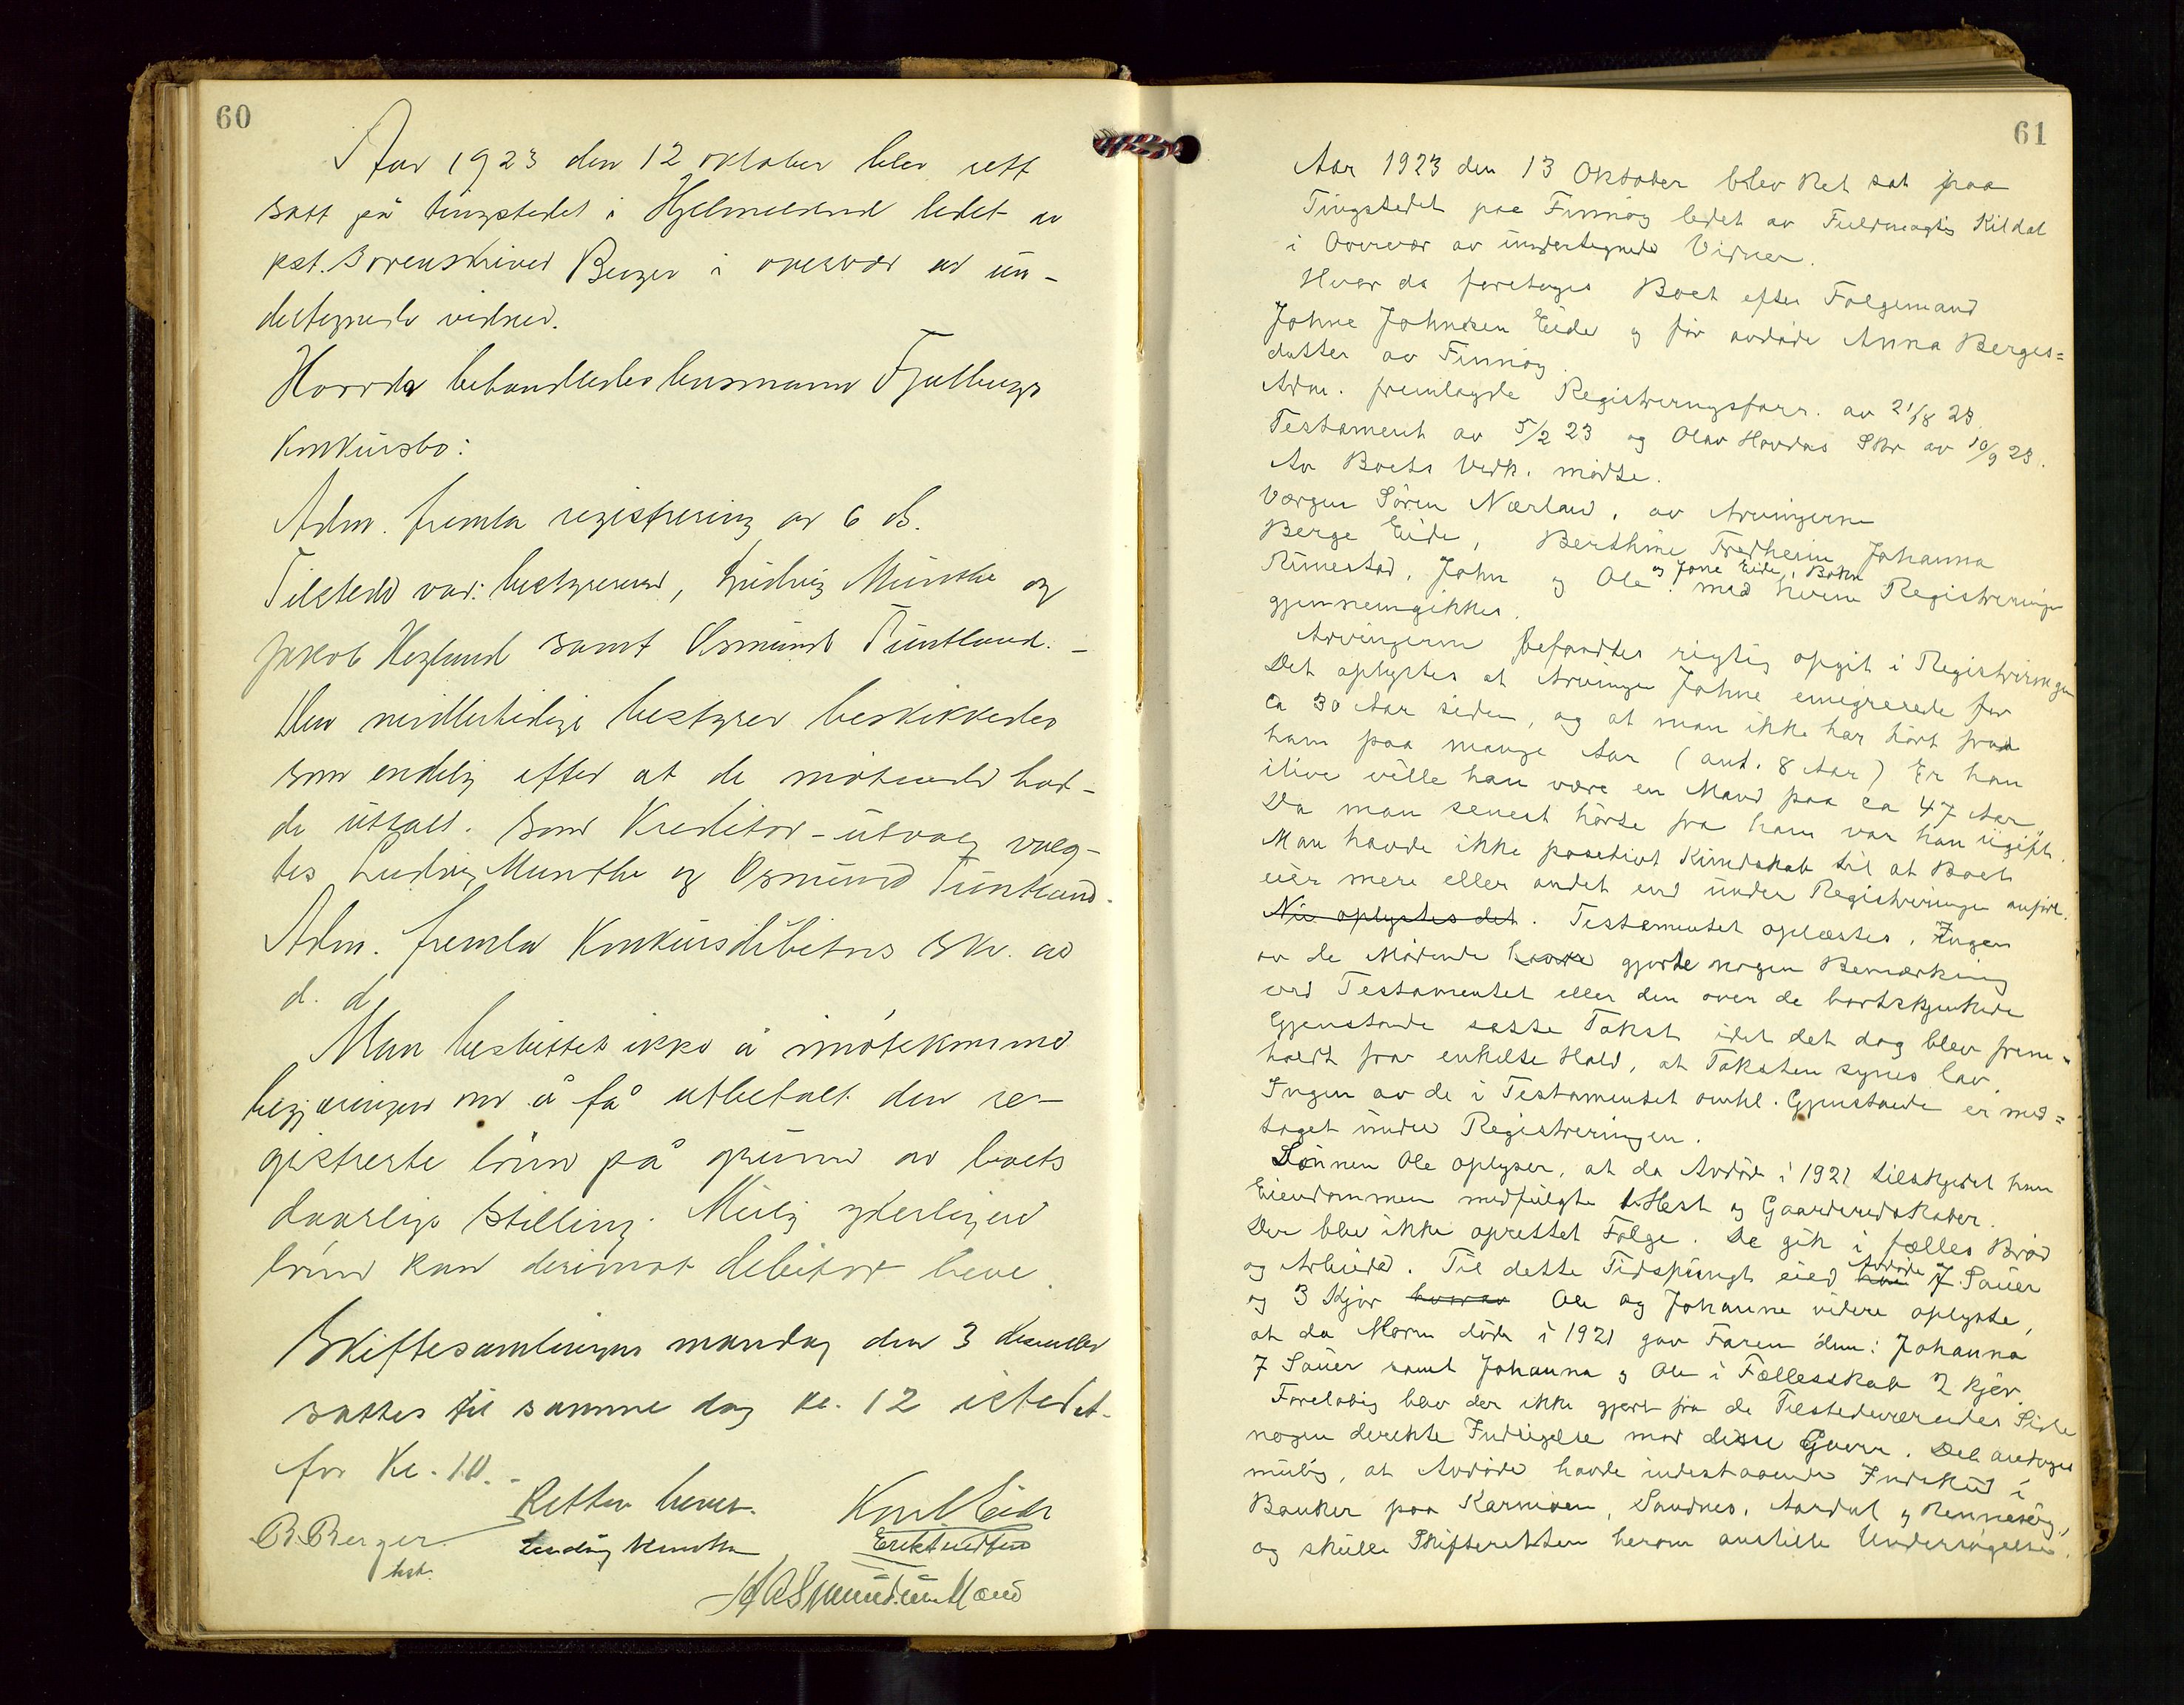 60
Aar 1923 den 12 oktober blev rett
satt på tingstedet i Hjelmeland ledet av
kst. sorenskriver Berger i overvær av un-
dertegnede vidner.
Hvorda behandledes lensmann Fjelbergs
konkursbo:
Adm. fremla registrering av 6 ds.
Tilstede var: bestyreren, Ludvig Munthe og
Jakob Hegland samt Osmund Tuntland. -
Den midlertidige bestyrer beskikkedes
som endelig efter at de møtende had-
de uttalt. Som Kreditor-utvalg valg-
tes Ludvig Munthe og Osmund Tuntland.
Adm. fremla Konkursdebitors skr. av
d. d.
Man besluttet ikke å imøtekomme
begjæringen om å få utbetalt den re-
gistrerte lønn på grunn av boets
daarlige stilling. Mulig yderligere
lønn kan derimot debitor heve.
Skiftesamlingen mandag den 3 desember
sattes til samme dag kl. 12 istedet-
for Kl. 10. -
Retten hevet.
B. Berger
Ludvig Munthe
Asmund Tuntland
61
Aar 1923 den 13 Oktober blev Ret sat paa
Tingstedet paa Finnøy ledet av Fuldmægtig Kildal
i Overvær av undertegnede Vidner.
Hvor da foretoges Boet efter Følgemand
Johne Johnsen Eide og før avdøde Anna Berges=
datter av Finnøy.
Adm. fremlagde Registreringsforr. av 21/8 23.
Testament av 5/2 23 og Olav Hovdas Skr av 10/9 23.
Av Boets Vedk. mødte.
Værgen Søren Nærland, av Arvingerne
Berge Eide, Berthine Tredheim Johanna
Rimestad, John og Ole og Jone Eide, Bokn. med hvem Registreringen
gjennemgikkes.
Arvingerne befandtes rigtig opgit i Registreringen
Det oplystes at Arvinge Johne emigrerede for
ca 30 Aar siden, og at man ikke har hørt fra
ham paa mange Aar (ant. 8 Aar) Er han
ilive ville han være en Mand paa ca 47 Aar
Da man senest hørte fra ham var han ugift.
Man havde ikke positivt Kundskab til at Boet
eier mere eller andet end under Registreringen anført.
Nu oplystes det. Testamentet oplæstes. Ingen
av de Mødende havde gjorde nogen Bemærkning
ved Testamentet eller den over de bortskjænkede
Gjenstande satte Takst idet det dog blev frem=
holdt fra enkelte Hold, at Taksten synes lav.
Ingen av de i Testamentet omhl. Gjenstande er med=
taget under Registreringen.
Sønnen Ole oplyser, at da Avdøde i 1921 tilskjødet ham
Eiendommen medfulgte 1 Hest og Gaardsredskaber.
Der blev ikke oprettet Følge. De gik i fælles Brød
og Arbeide. Til dette Tidspungt eied han Avdøde 7 Sauer
og 3 Kjør hvorav Ole og Johanne videre oplyste,
at da Moren døde i 1921 gav Faren dem: Johanna
7 Sauer samt Johanna og Ole i Fællesskab 2 Kjør.
Foreløbig blev der ikke gjort fra de Tilstedeværendes Side
nogen direkte Indsigelse mod disse Gaver. Det antoges
mulig, at Avdøde havde indestaaende Indskud i
Banker paa Karmøen, Sandnes, Aardal og Rennesøy,
og skulle Skifteretten herom anstille Undersøgelse.